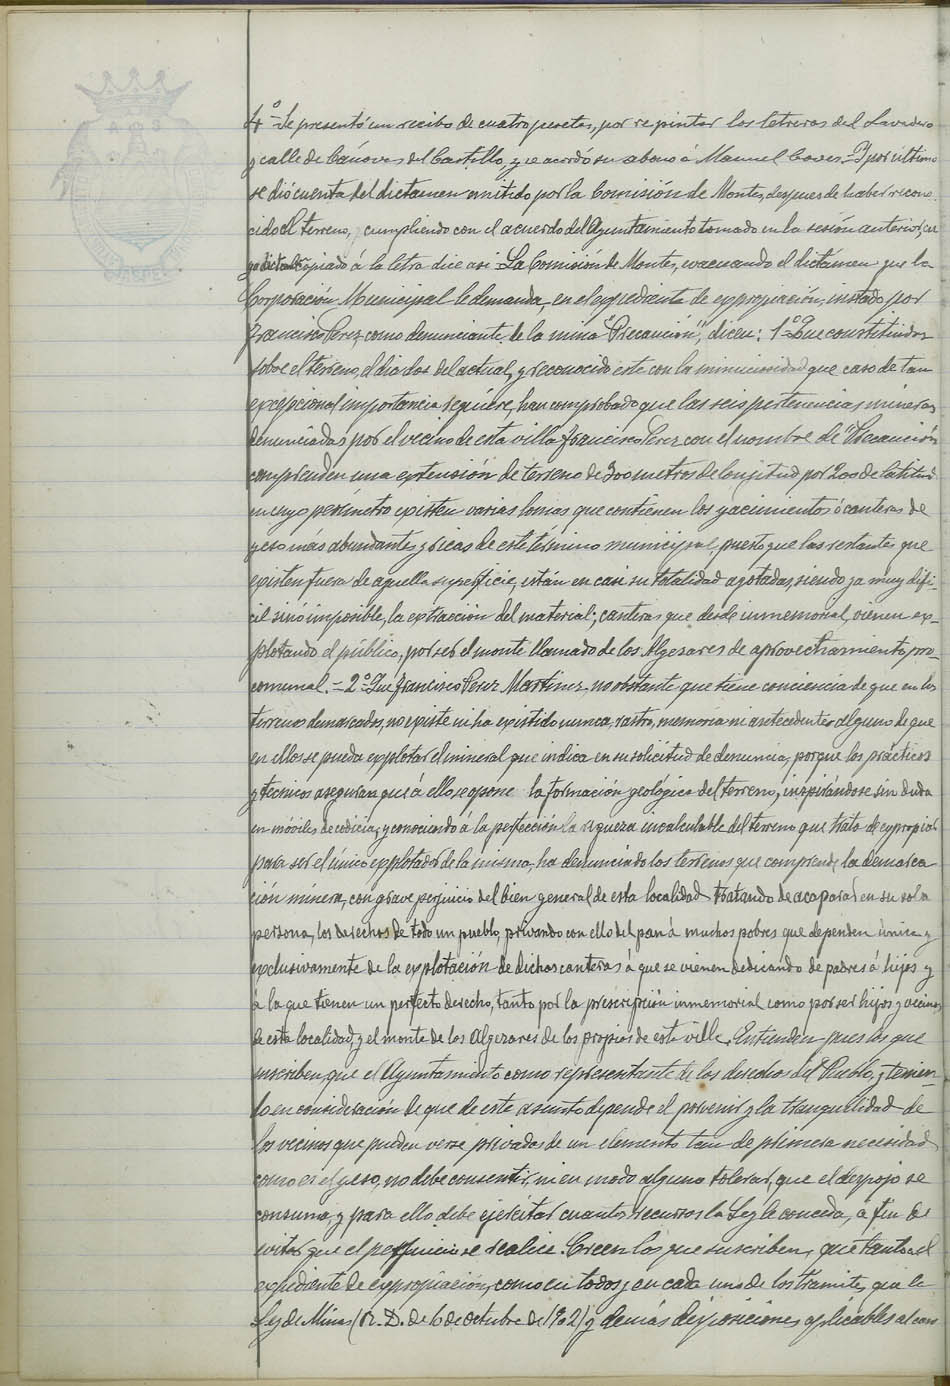 4º Se presentó un recibo de cuatro pesetas, por repintar los letreros del Lavadero
y calle de Cánovas del Castillo, y se acordó su abono á Manuel Coves = Y por último
se dió cuenta del dictamen emitido por la Comisión de Montes, despues de haber recono-
cido el terreno, cumpliendo con el acuerdo del Ayuntamiento tomado en la sesión anterior, cu
yo copiado á la letra dice asi. La Comisión de Montes, evacuando el dictámen que la
Corporación Municipal le demanda, en el expediente de expropiación, instado por
Francisco Perez, como denunciante de la mina "Precaución", dicen: 1º Que constituidos
sobre el terreno, el dia dos del actual, y reconocido este con la minuciosidad que caso de tan
excepcional importancia requiere, han comprobado que las seis pertenencias mineras
denunciadas por el vecino de esta villa Francisco Perez con el nombre de "Precaución
comprenden una extensión de terreno de 300 metros de longitud por 200 de latitud
en cuyo perímetro existen varias lomas que contienen los yacimientos ó canteras de
yeso mas abundantes y ricas de este término municipal, puesto que las restantes que
existen fuera de aquella superficie, están en casi su totalidad agotadas, siendo ya muy difi-
cil sinó imposible, la extracción del material; canteras que desde inmemorial, vienen ex-
plotando el público, por ser el monte llamado de los Algesares de aprovechamiento pro-
comunal. = 2º Que Francisco Perez Martinez, no obstante que tiene conciencia de que en los
terrenos demarcados, no existe ni ha existido nunca, rastro, memoria ni antecedentes alguno de que
en ellos se pueda explotar el mineral que indica en su solicitud de denuncia, porque los prácticos
y técnicos aseguran que á ello se opone la formación geológica del terreno, inspirándose sin duda
en móviles de codicia, y conociendo á la perfección la riqueza incalculable del terreno que trata de expropiar
para ser el único explotador de la misma, ha denunciado los terrenos que comprende la demarca
ción minera, con grave perjuicio del bien general de esta localidad tratando de acaparar en su sola
persona, los derechos de todo un pueblo, privando con ello del pan á muchos pobres que dependen única y
exclusivamente de la explotación de dichas canteras á que se vienen dedicando de padres á hijos y
á la que tienen un perfecto derecho, tanto por la prescripción inmemorial como por ser hijos y vecinos
de esta localidad, y el monte de los Algezares de los propios de esta villa. Entienden pues los que
suscriben, que el Ayuntamiento como representante de los derechos del Pueblo, y tenien-
do en consideración de que de este asunto depende el porvenir y la tranquilidad de
los vecinos que pueden verse privados de un elemento tan de primera necesidad
como es el yeso, no debe consentir, ni en modo alguno tolerar, que el despojo se
consuma, y para ello debe ejercitar cuantos recursos la Ley le conceda, á fin de
evitar que el perjuicio se realice. Creen los que suscriben, que tanto el
expediente de expropiación, como en todos y en cada uno de los tramites, que la
Ley de Minas (R. D. de 6 de octubre de 1902) y demás disposiciones aplicables al caso